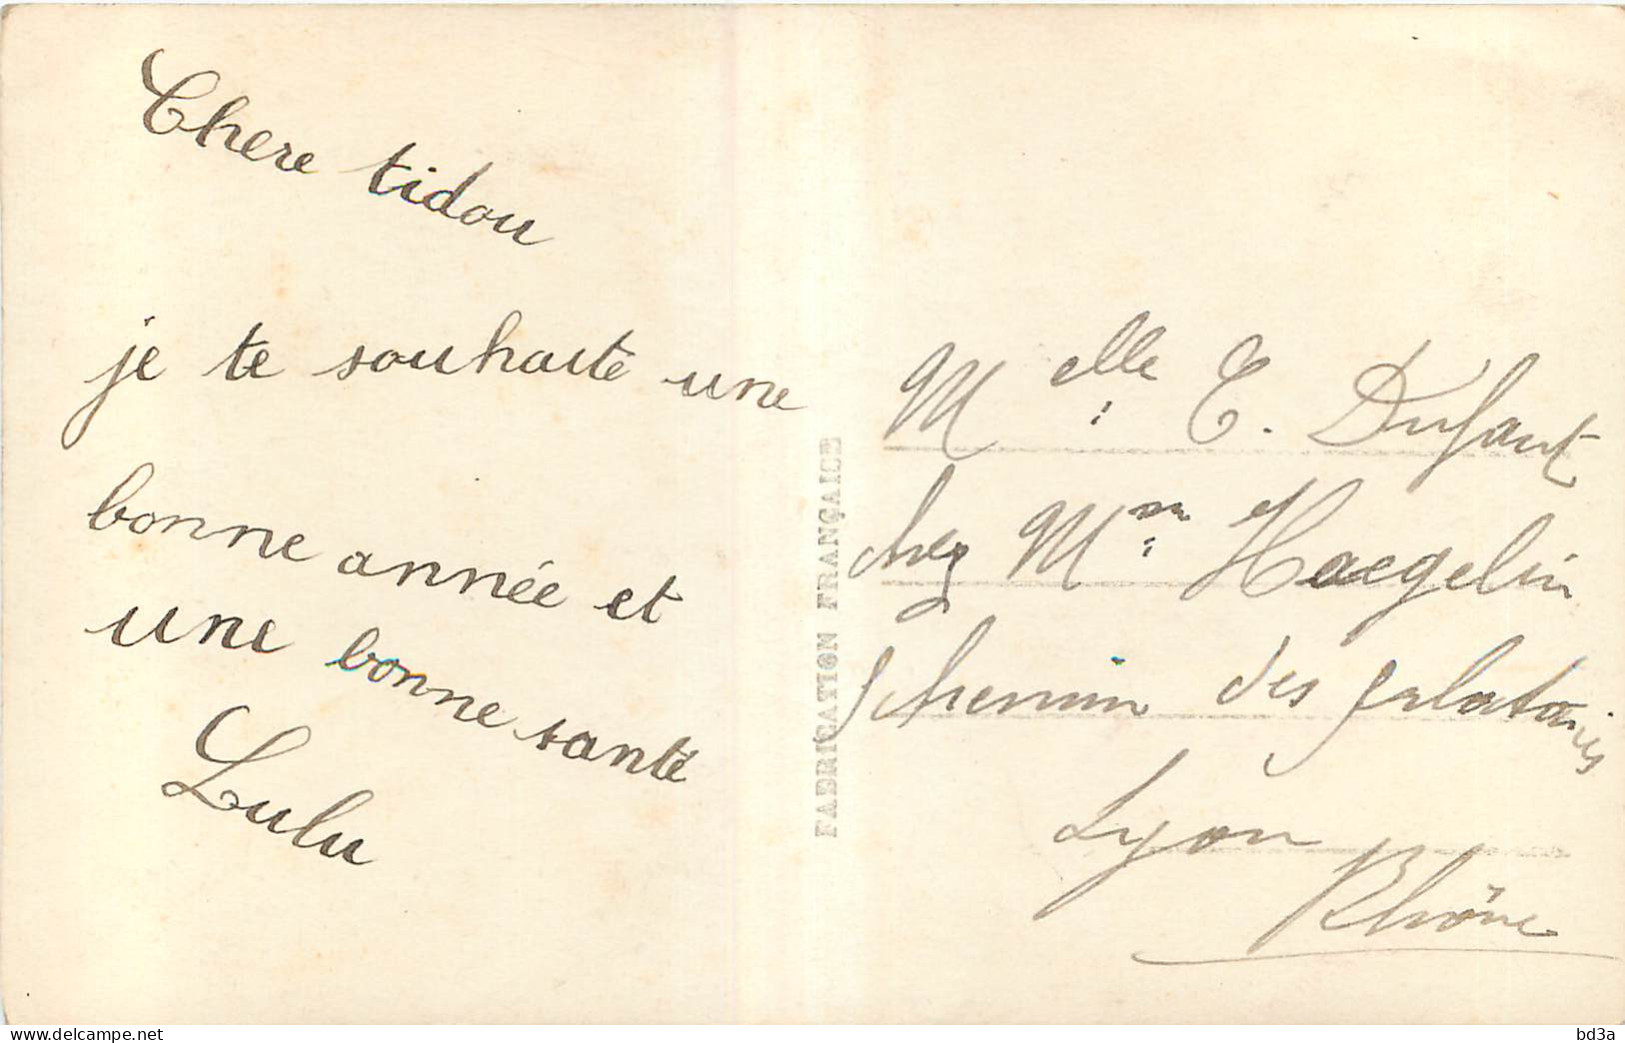 Chere tidou
je te souhaite une
bonne année et
une bonne santé
Lulu
FABRICATION FRANÇAISE
Melle T. Dufaut
chez Mm Haegelin
chemin des
Lyon
Rhône
www.delcampe.net
bd3a